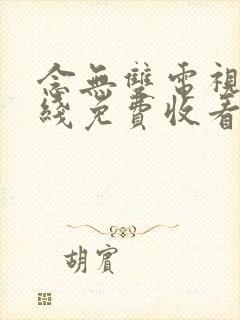 念無雙電視
綫免費收看
胡賓